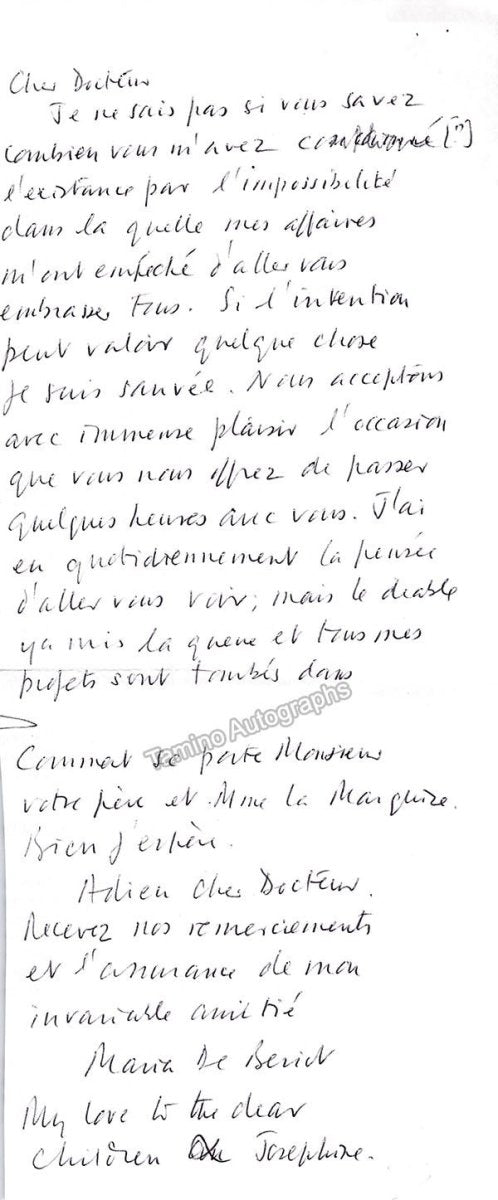 Cher Docteur
Je ne sais pas si vous savez
combien vous m'avez [?]
l'existance par l'impossibilité
dans la quelle mes affaires
m'ont empeché d'aller vous
embrasser tous. Si l'intention
peut valoir quelque chose
je suis sauvée. Nous acceptons
avec immense plaisir l'occasion
que vous nous offrez de passer
quelques heures avec vous. J'ai
eu quotidiennement la pensée
d'aller vous voir; mais le diable
y a mis la queue et tous mes
projets sont tombés dans
Comment se porte Monsieur
votre père et Mme la Marquise.
Bien j'espère.
Adieu Cher Docteur.
Recevez nos remerciements
et l'assurance de mon
invariable amitié
Maria De Beriot
My love to the dear
children Josephine.
Tamino Autographs